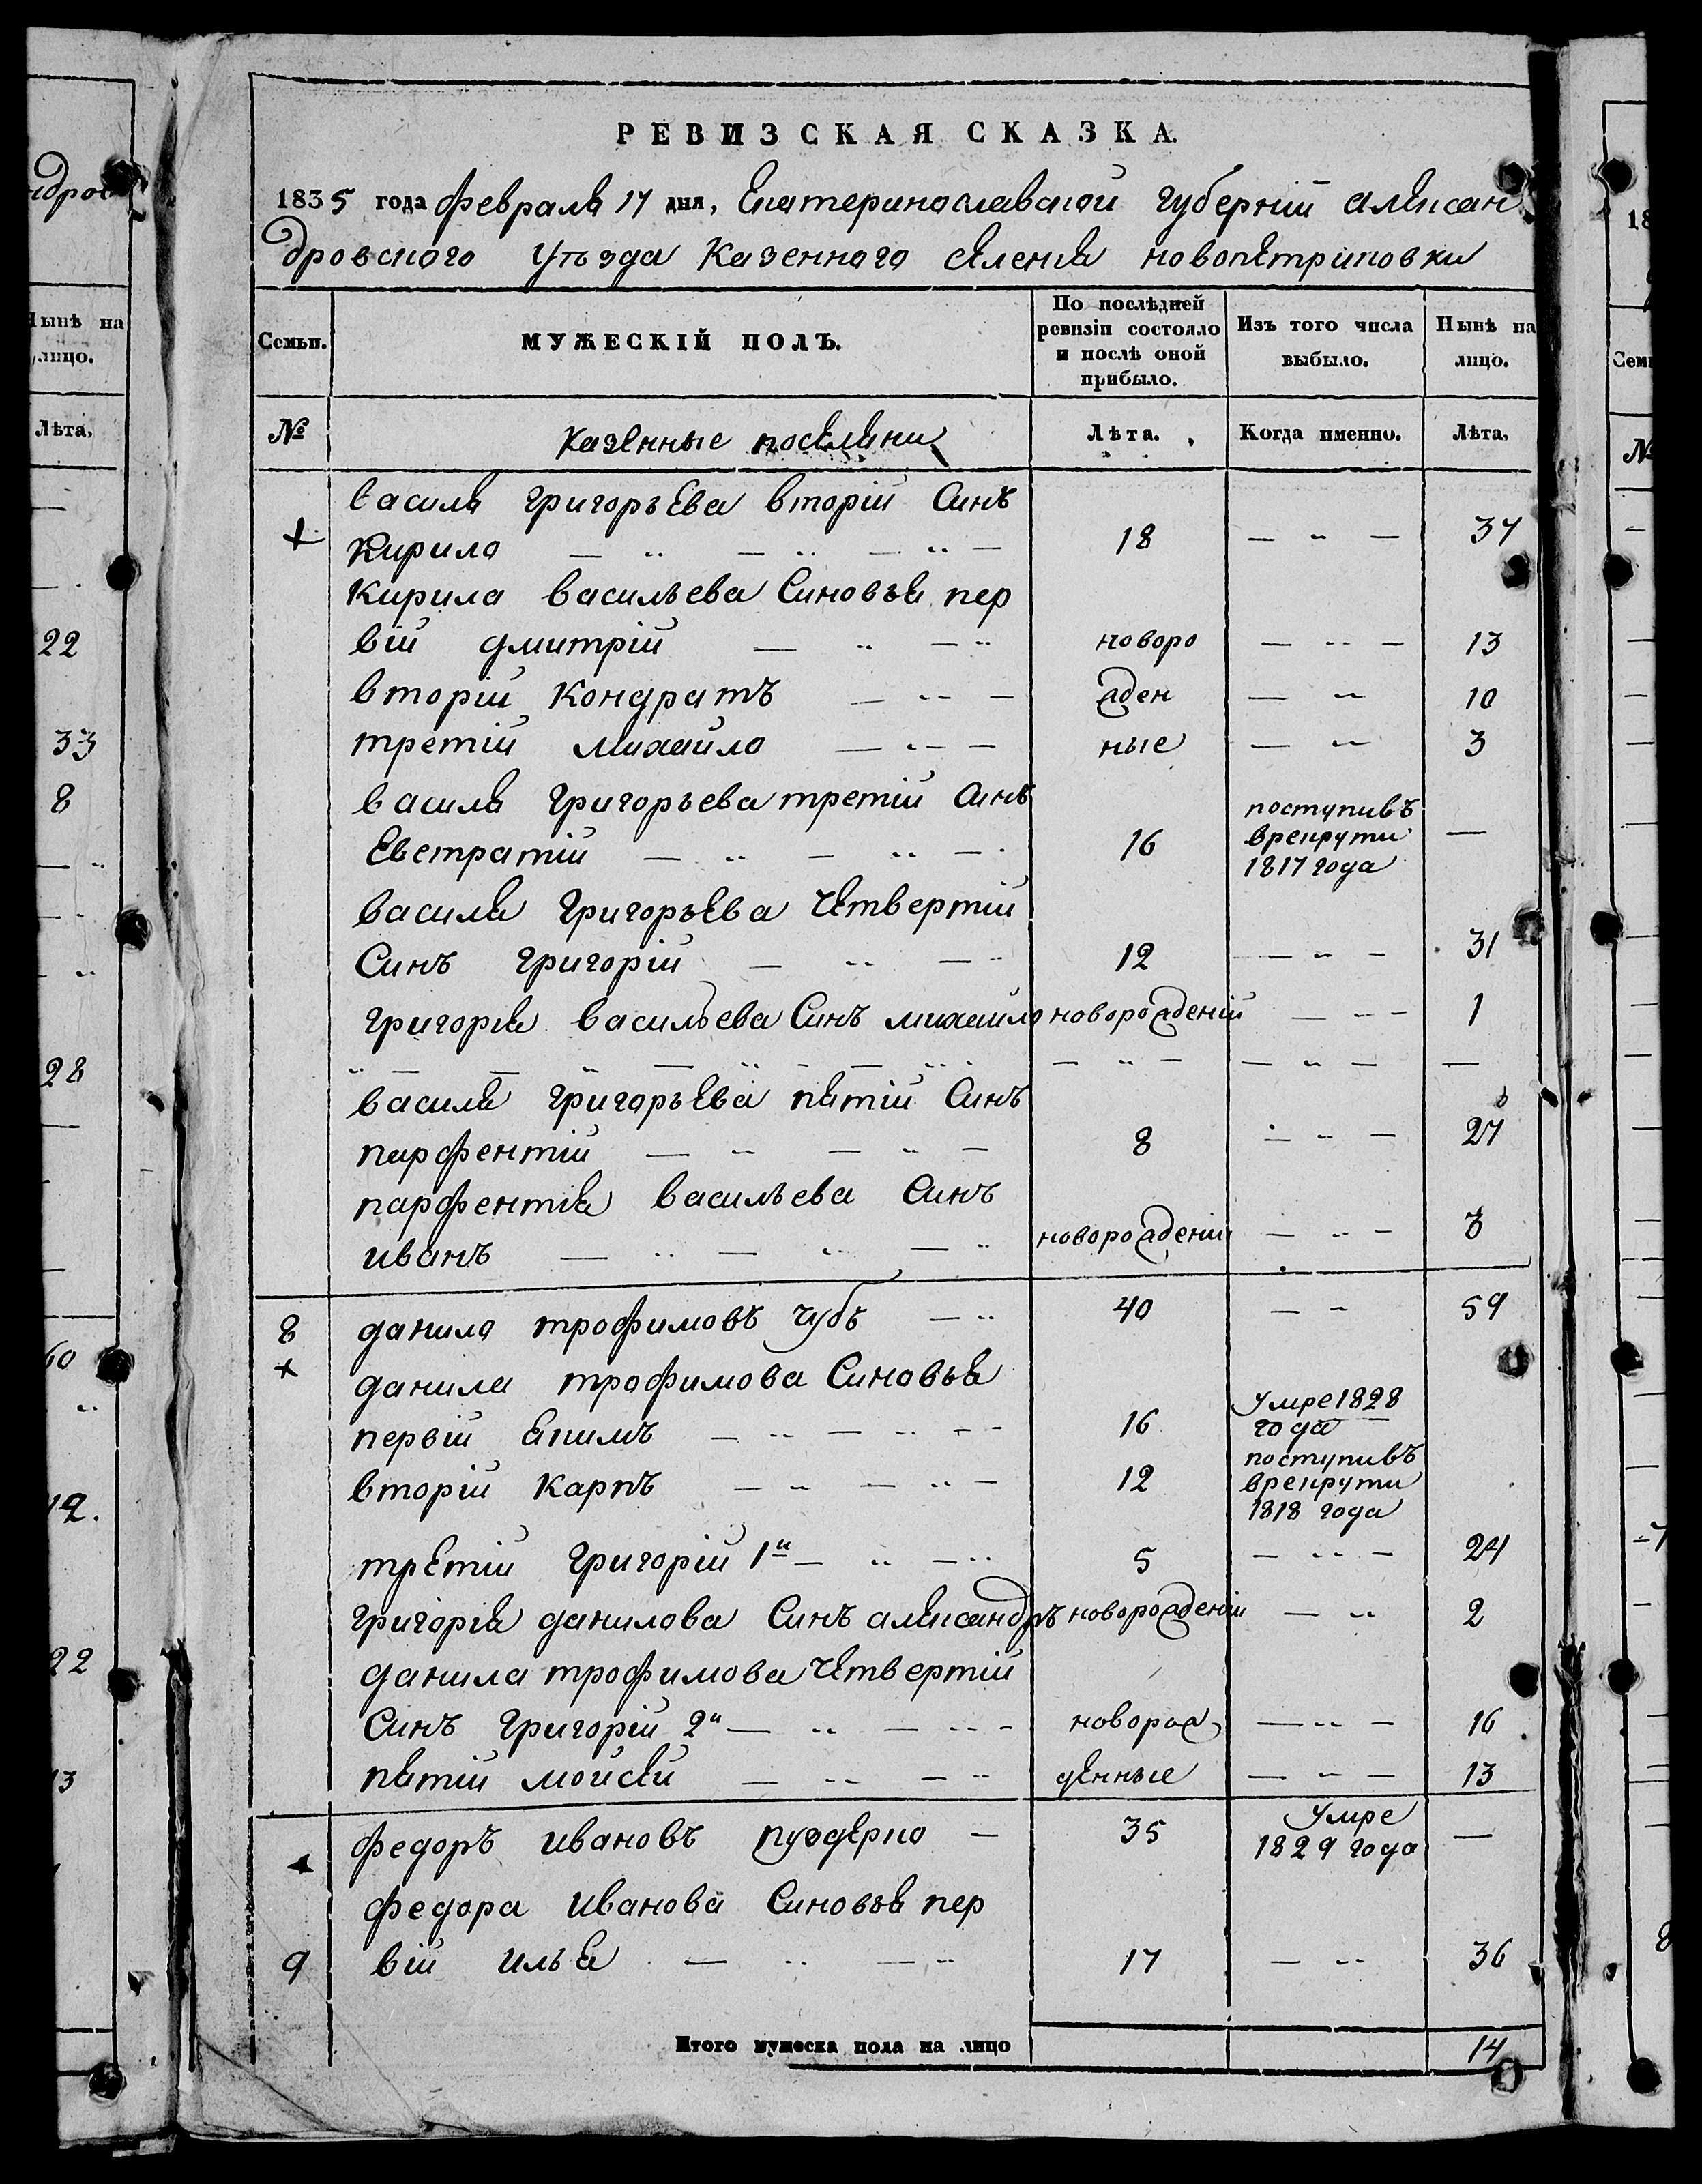 РЕВИЗСКАЯ СКАЗКА.
1835 года февраля 17 дня, Екатеринославской губерніи алексан
дровского уъзда казенного селенія новопетриковки
Семьи. МУЖЕСКІЙ ПОЛЪ. По послѣдней ревизіи состояло и послѣ оной прибыло. Изъ того числа выбыло. Нынѣ на лицо.
№ казенные поселяни Лѣта. Когда именно. Лѣта.
василя григорьева вторій синъ
кирило 18 37
кирила васильева синовья пер
вій дмитрій новоро 13
вторій кондратъ жден 10
третій михайло ные 3
василя григорьева третій синъ
евстратій 16 поступивъ врекрути 1817 года
василя григорьева четвертій
синъ григорій 12 31
григорія васильева синъ михаило новорожденій 1
василя григорьева пятій синъ
парфентій 8 27
парфентія васильева синъ
иванъ новорожденій 3
8 данило трофимовъ чубъ 40 59
данила трофимова синовья
первій екимъ 16 умре 1828 года
вторій карпъ 12 поступивъ врекрути 1818 года
третій григорій 1й 5 24
григорія данилова синъ александръ новорожденій 2
данила трофимова четвертій
синъ григорій 2й новорож 16
пятій моисей денные 13
федоръ ивановъ пуздерко 35 умре 1829 года
федора иванова синовья пер
9 вій илья 17 36
Итого мужеска пола на лицо 14
ндров
Нынѣ на
лицо.
Лѣта,
22
33
8
28
60
12.
22
13
18
Семь
№